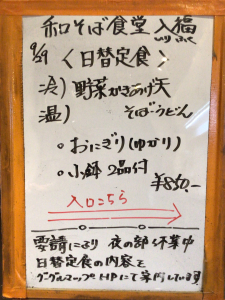 和そば食堂 入福
いりふく
9/29 〈日替定食〉
冷) 野菜かきあげ天
温) そばorうどん
○おにぎり(ゆかり)
○小鉢 2品付
¥850.-
入口こちら
要請により 夜の部 休業中
日替定食の内容を
グーグルマップ、HPにて案内しています